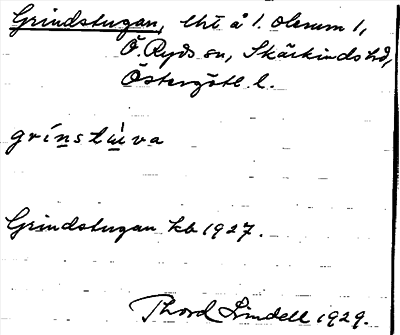 Grindstugan, lht å 1. Olerum 1,
Ö. Ryds sn, Skärkinds hd,
Östergötl. l.
grínstùva
Grindstugan kb 1927.
Thord Lindell 1929.